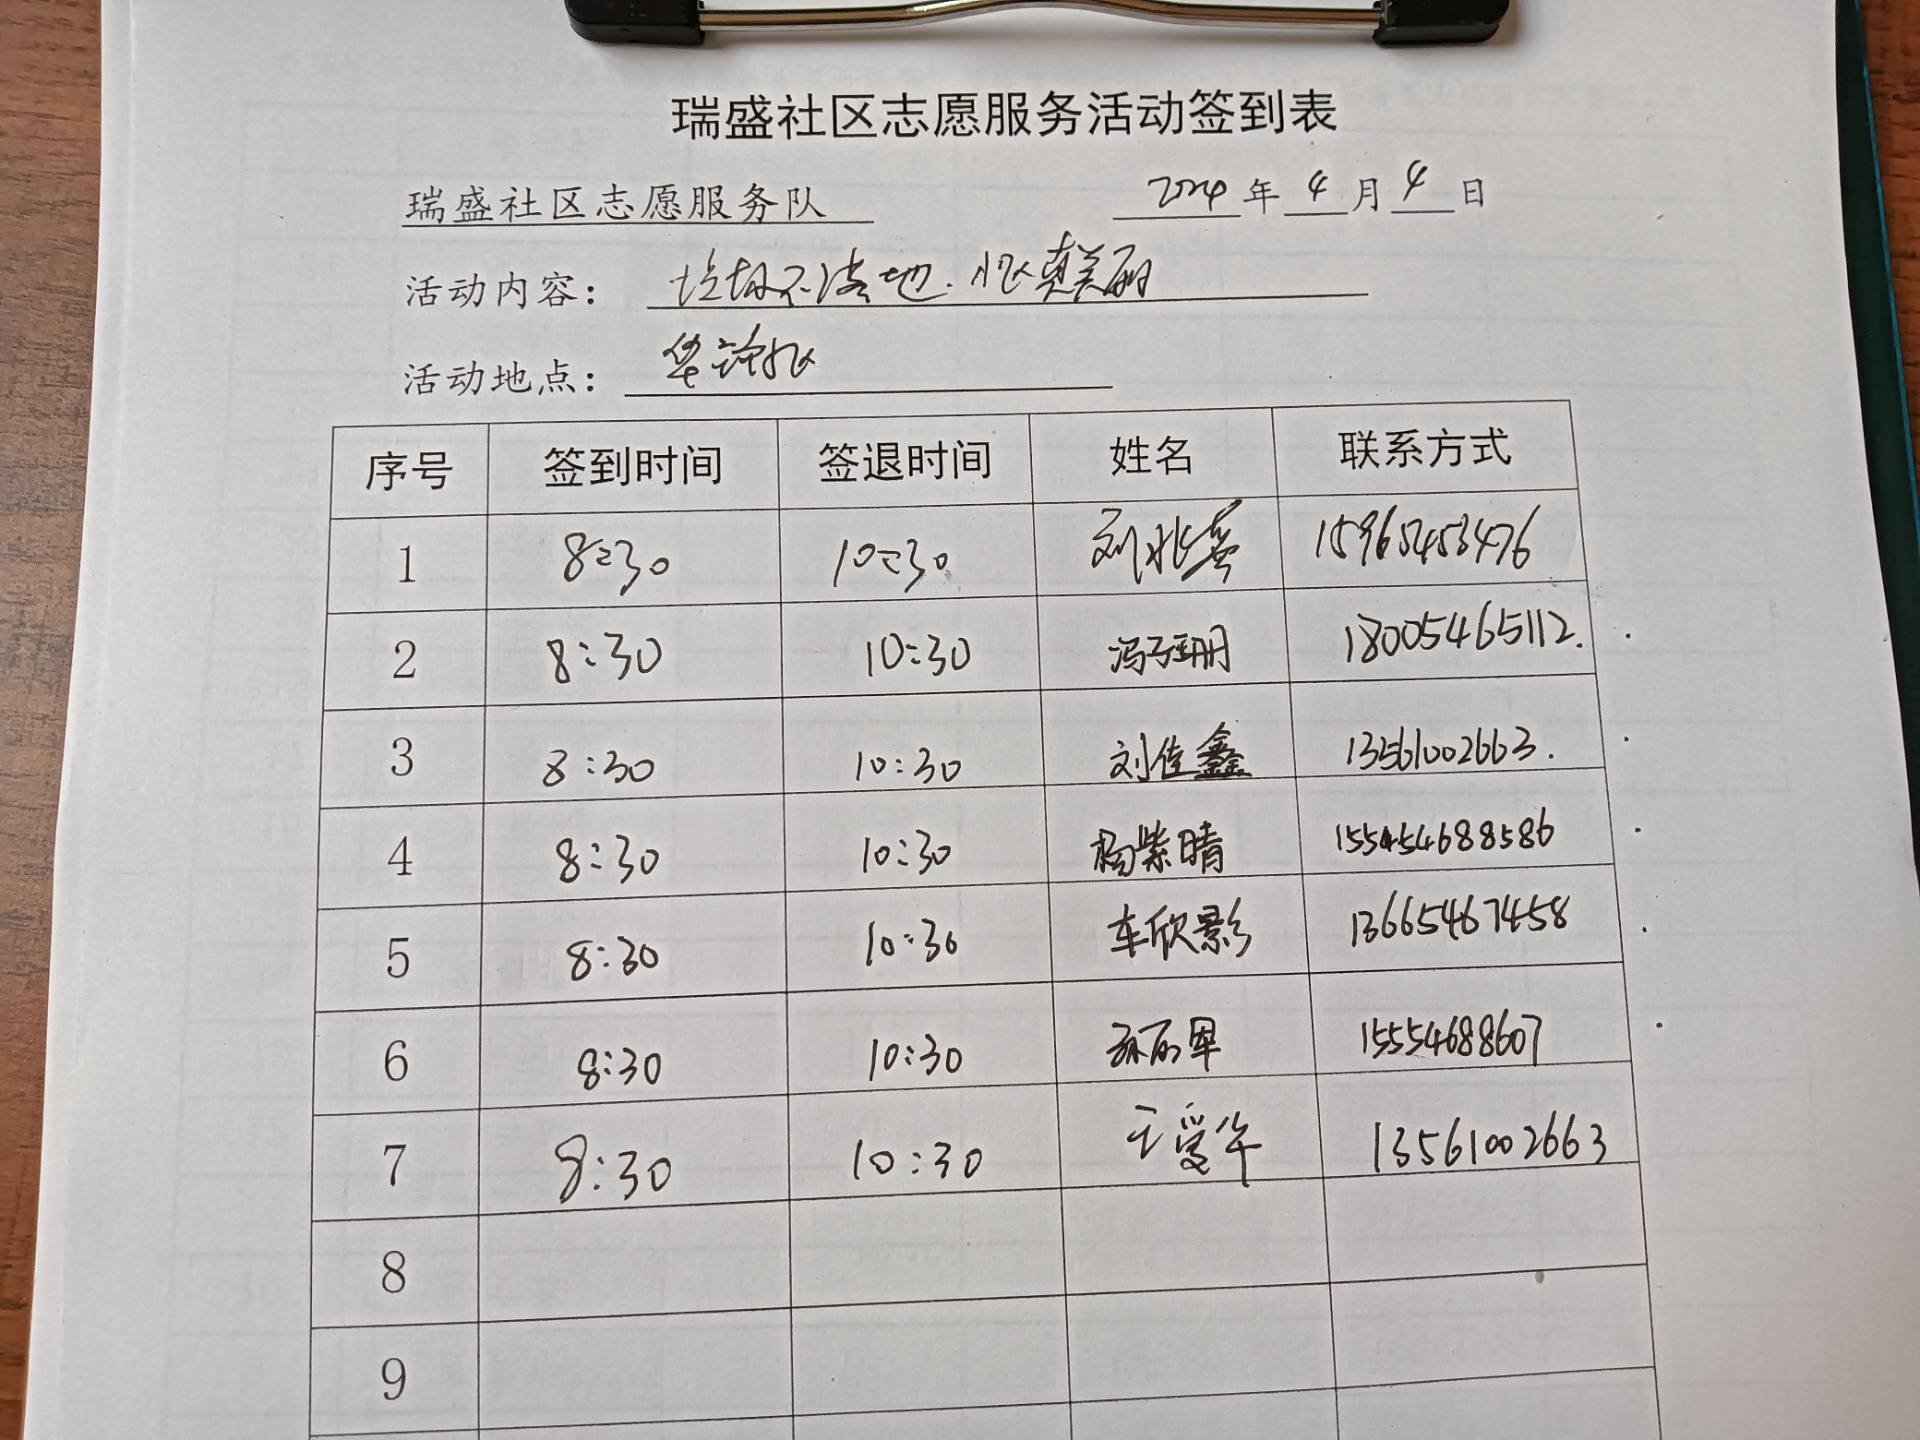 瑞盛社区志愿服务活动签到表
瑞盛社区志愿服务队 2024年4月4日
活动内容： 垃圾不落地.小区更美丽
活动地点： 华泽小区
序号 签到时间 签退时间 姓名 联系方式
1 8:30 10:30 刘兆 15965453476
2 8:30 10:30 冯子珊 18005465112.
3 8:30 10:30 刘佳鑫 13561002663.
4 8:30 10:30 杨紫晴 155454688586
5 8:30 10:30 车欣影 13665467458
6 8:30 10:30 15554688607
7 8:30 10:30 王爱华 13561002663
8
9